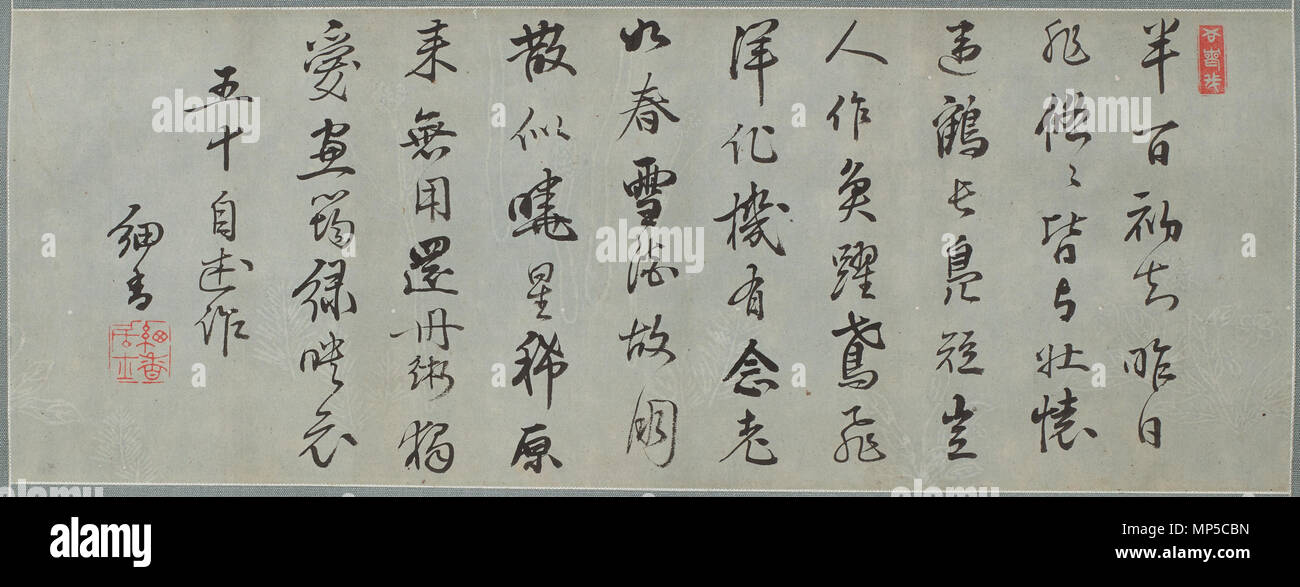 半百初知昨日
非悠々皆与壮懐
違鶴長鳧短豈
人作魚躍鳶飛
渾化機有念老
如春雪故朋
散似曉星稀原
来無用還丹術獨
愛畫筠緑映衣
五十自述作
細香
細香居士
alamy
Image ID: MP5CBN
www.alamy.com